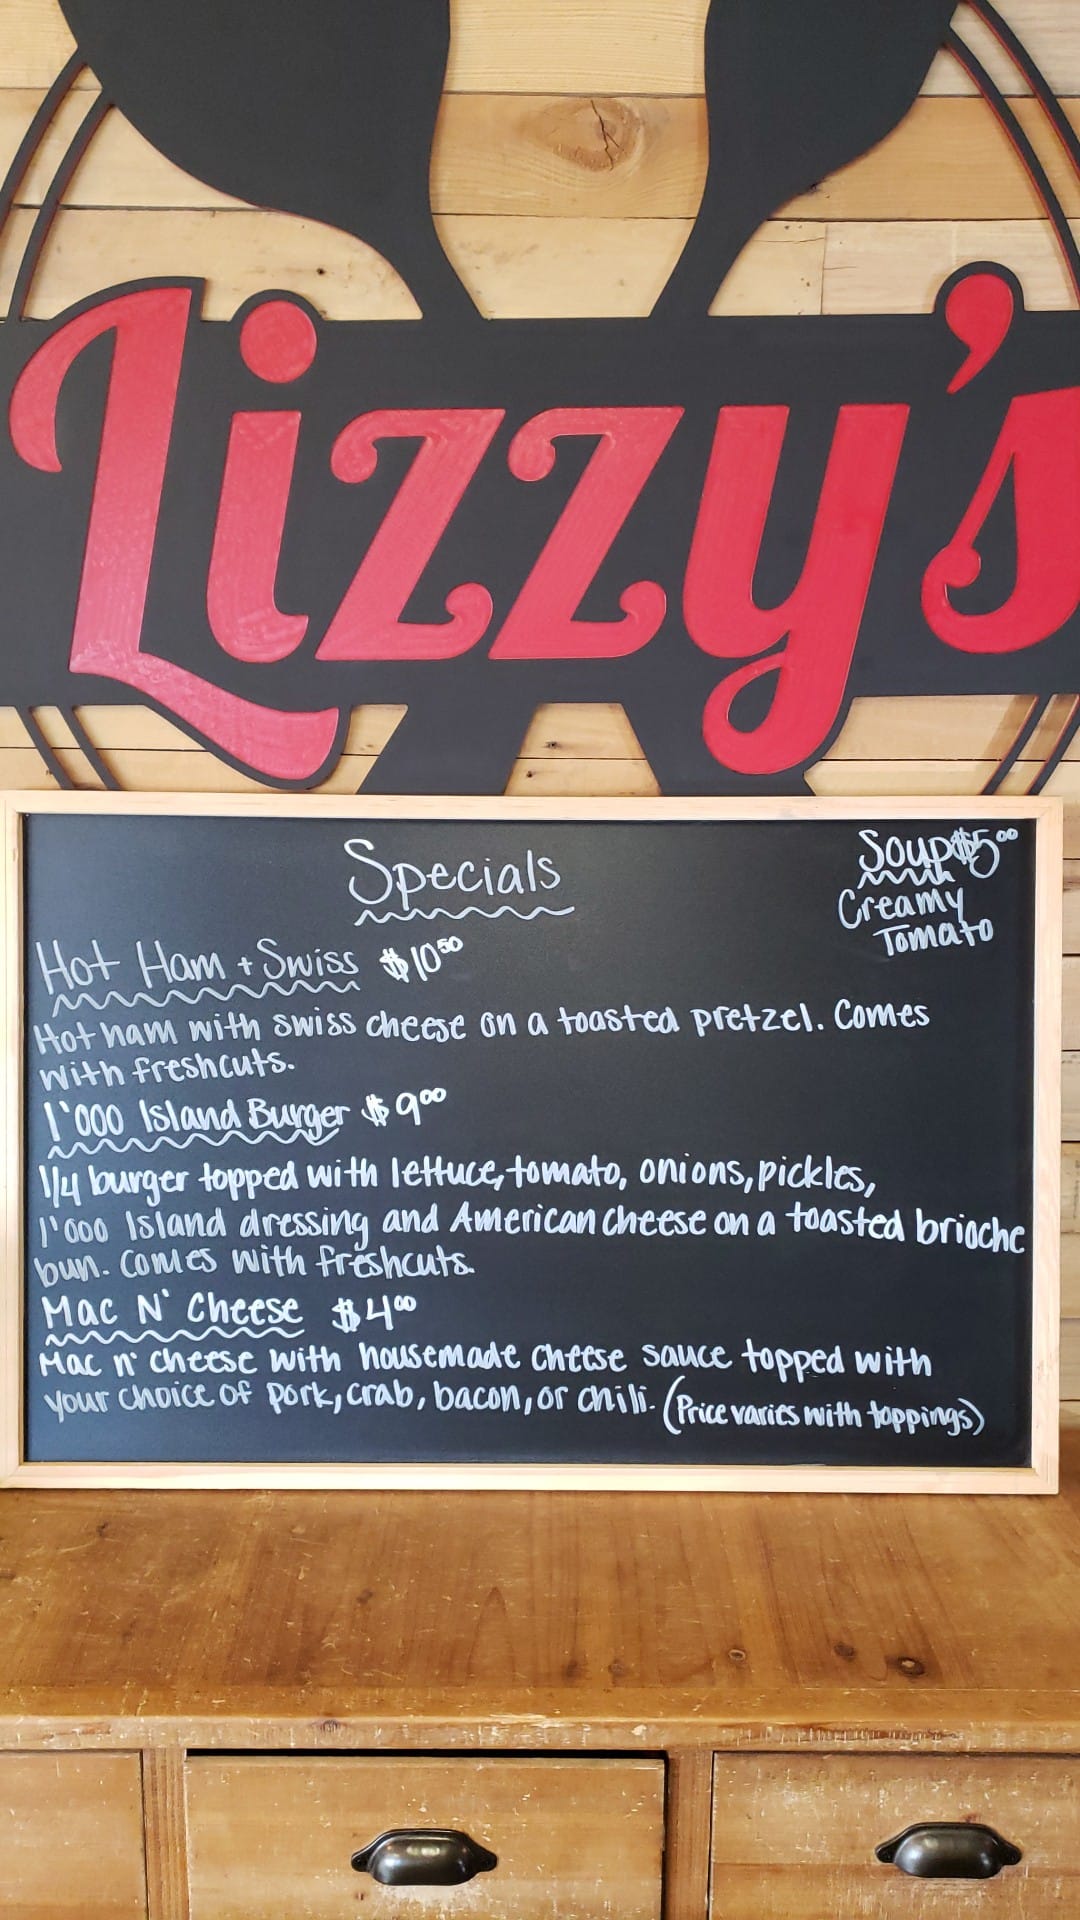 Lizzy's
Specials
Soup $5.00
Creamy
Tomato
Hot Ham + Swiss $10.50
Hot ham with swiss cheese on a toasted pretzel. Comes
with freshcuts.
1'000 Island Burger $9.00
1/4 burger topped with lettuce, tomato, onions, pickles,
1'000 Island dressing and American cheese on a toasted brioche
bun. Comes with freshcuts.
Mac N' Cheese $4.00
Mac n' cheese with housemade cheese sauce topped with
your choice of pork, crab, bacon, or chili. (Price varies with toppings)